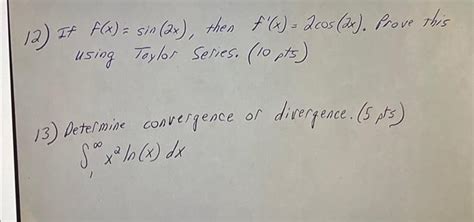 12) If f(x) = sin(2x), then f'(x) = 2cos(2x). Prove this
using Taylor Series. (10 pts)
13) Determine convergence or divergence. (5 pts)
∫₁^∞ x² ln(x) dx